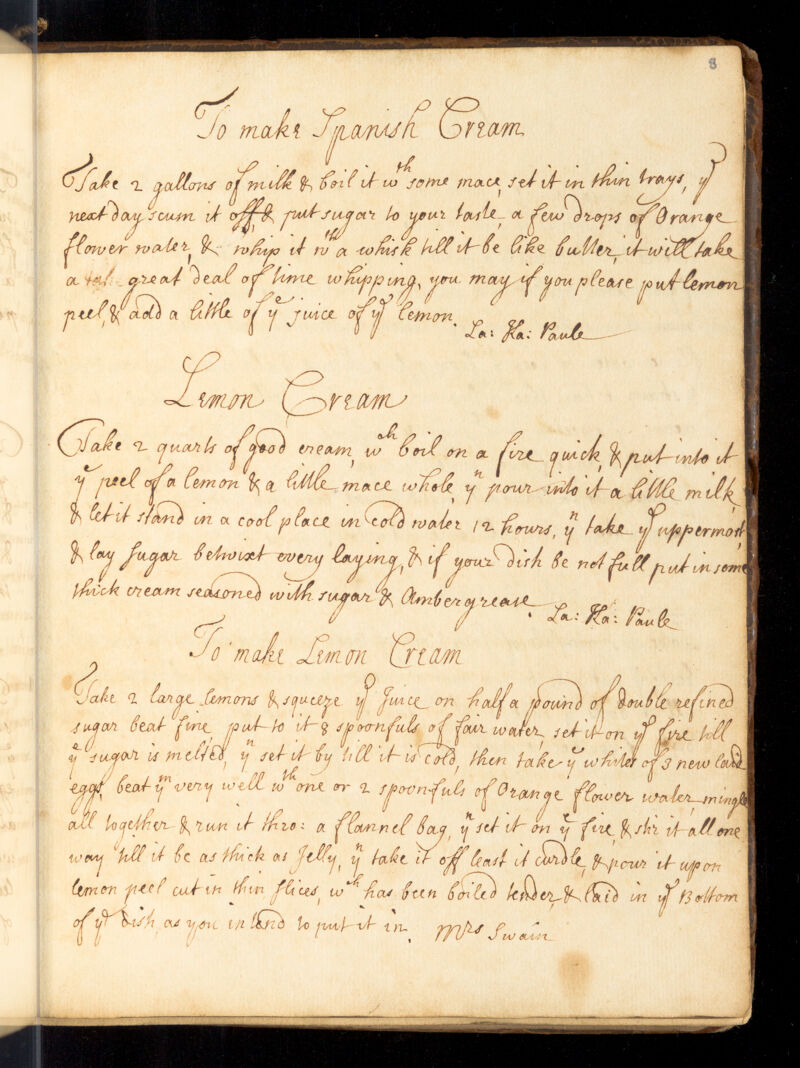 8
To make Spanish Cream
Take 2 gallons of milk & boil it wth some mace, set it in thin trays, ye
next day scum it off, & put sugar to your taste a few drops of Orange
flower water, & whip it wth a whisk till it be like butter, it will take
a great deal of time whipping, you may if you please put lemon
peel, & add a little of ye juice of ye lemon.
La: Ka: Paule
Lemon Cream
Take 2 quarts of good cream, wch boil on a fire quick, & put into it
ye peel of a lemon & a little mace whole, yn pour into it a little milk,
& let it stand in a cool place in cold water 12 hours, yn take ye uppermost,
& lay sugar betwixt every laying, & if your dish be not full put in some
thick cream seasoned with sugar & Ambergrease.
La: Ka: Paule
To make Lemon Cream
Take 2 large lemons & squeeze ye Juice on half a pound of double refined
sugar beat fine, put to it 8 spoonfuls of fair water, set it on ye fire till
ye sugar is melted, yn set it by till it is cold, then take ye whites of 3 new laid
eggs, beat ym very well wth one or 2 spoonfuls of Orange flower water, mingle
all together & run it thro: a flannel bag, yn set it on ye fire, & stir it all one
way till it be as thick as Jelly, yn take it off least it curdle, & pour it upon
lemon peel cut in thin slices, wch has been boiled tender, & laid in ye Bottom
of ye dish, as you intend to put it in.
Mrs Swain